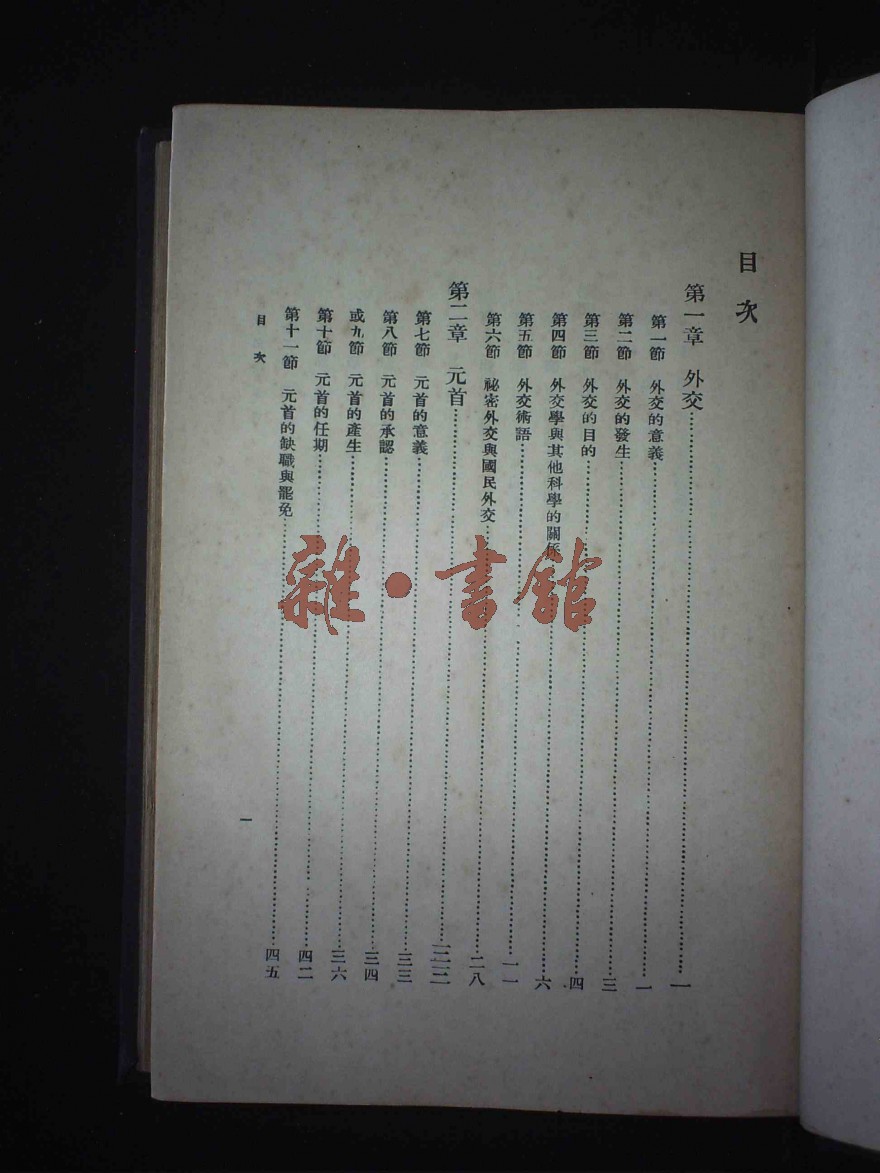 目次
第一章 外交……一
第一節 外交的意義……一
第二節 外交的發生……三
第三節 外交的目的……四
第四節 外交學與其他科學的關係……六
第五節 外交術語……一一
第六節 祕密外交與國民外交……二八
第二章 元首……三三
第七節 元首的意義……三三
第八節 元首的承認……三四
或九節 元首的產生……三六
第十節 元首的任期……四二
第十一節 元首的缺職與罷免……四五
目次
一
雜·書館